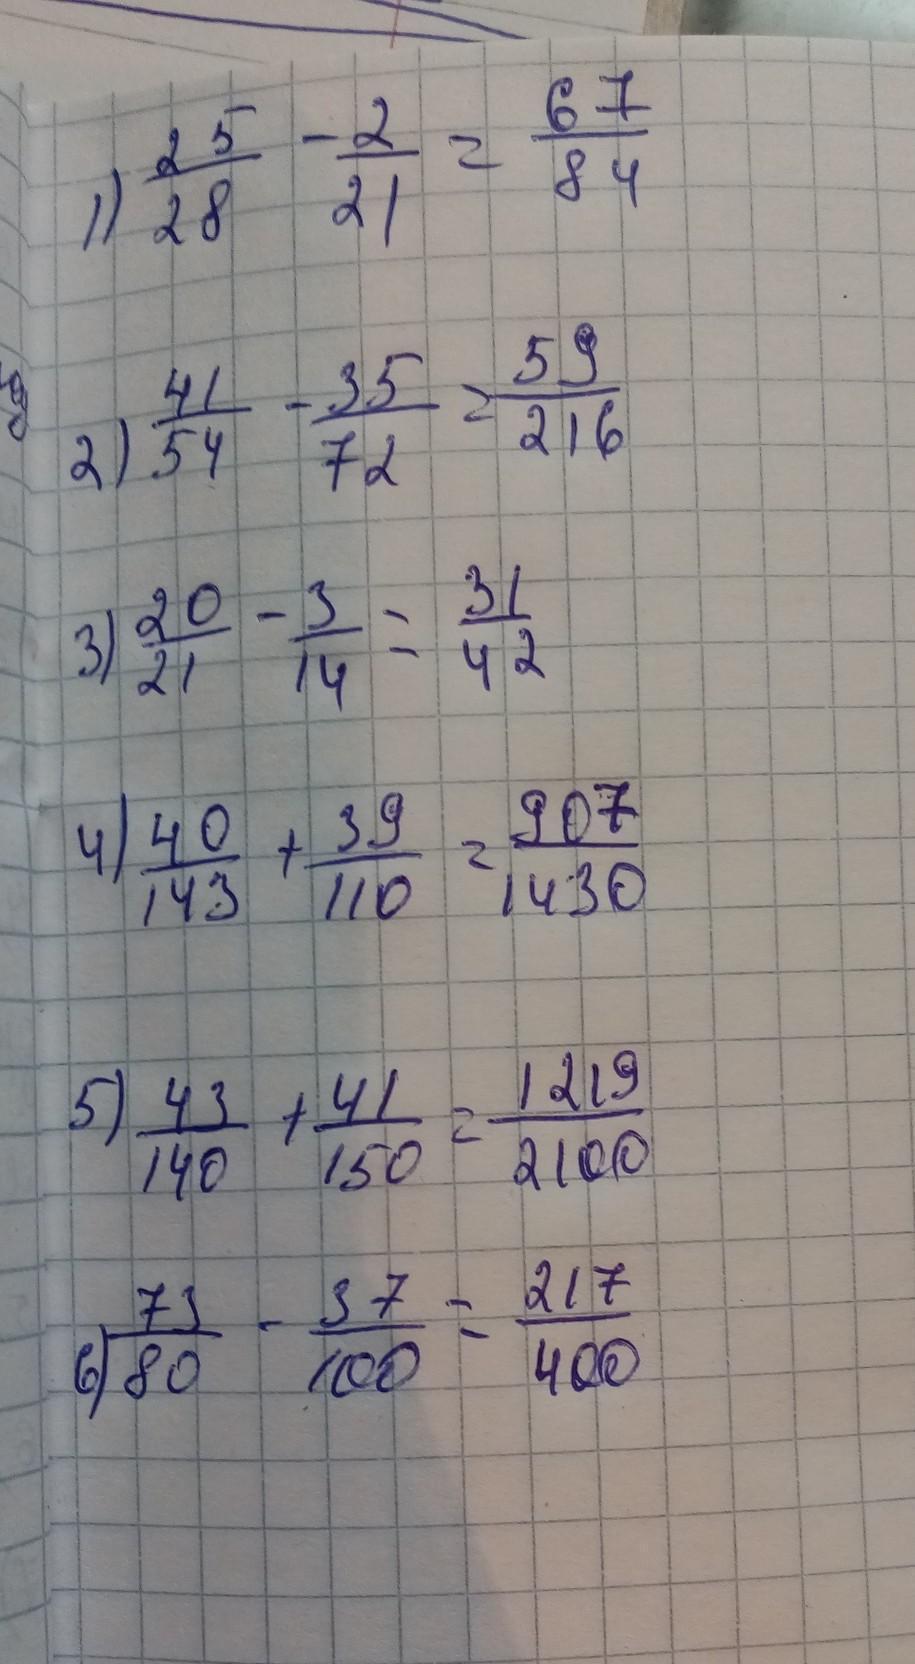 1) 25/28 - 2/21 = 67/84
2) 41/54 - 35/72 = 59/216
3) 20/21 - 3/14 = 31/42
4) 40/143 + 39/110 = 907/1430
5) 43/140 + 41/150 = 1219/2100
6) 73/80 - 37/100 = 217/400